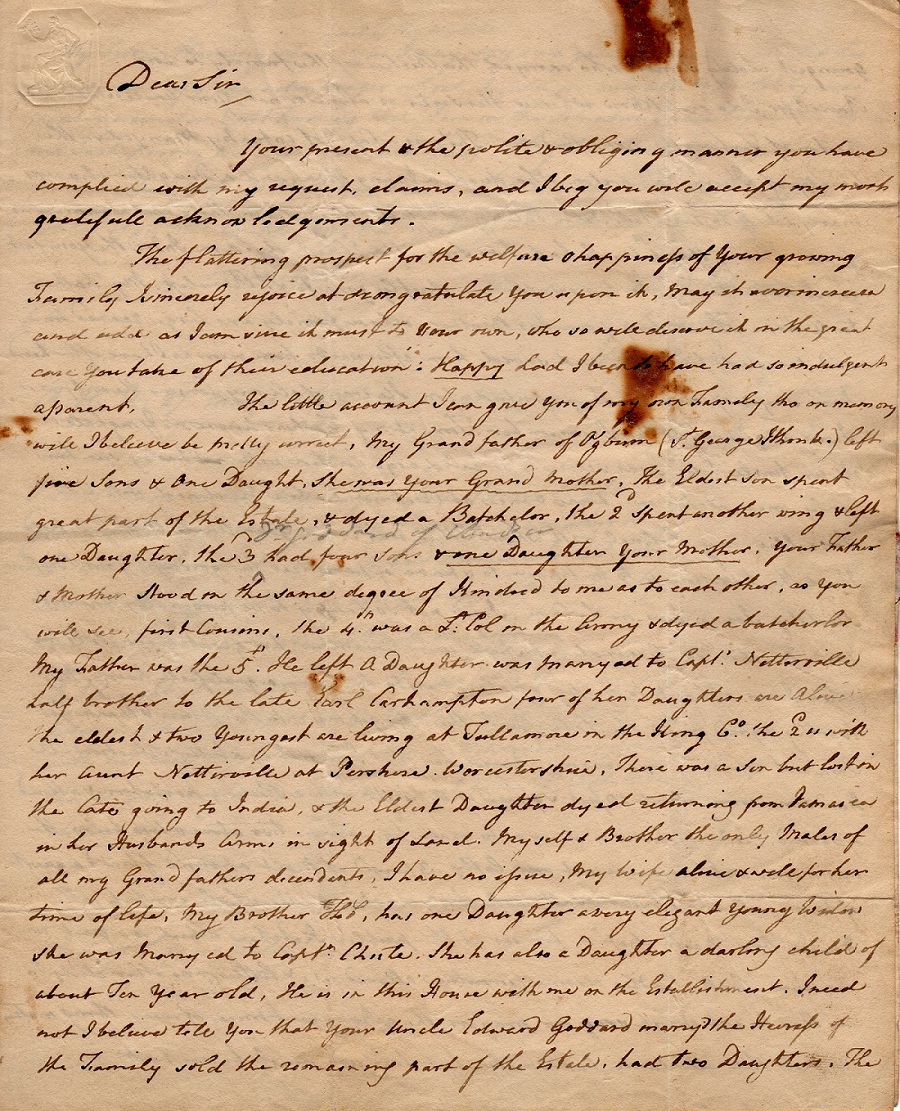 Dear Sir
Your present & the polite & obliging manner you have
complied with my request, claims, and I beg you will accept my most
gratefull acknowledgements.
The flattering prospect for the welfare & happiness of Your growing
Family I sincerely rejoice at & congratulate You upon it, May it ever increase
and add as I am sure it must to Your own, who so well deserve it on the great
care You take of their education: Happy had I been to have had so indulgent
a parent. The little account I can give You of my own Family tho on memory
will I believe be pretty correct, My Grand father of Ogburn (St George) left
five Sons & One Daught, She was Your Grand Mother, The Eldest Son spent
great part of the Estate, & dyed a Batchelor, the 2d spent another wing & left
one Daughter, the 3d had four Sons & one Daughter Your Mother. Your Father
& Mother stood in the same degree of Kindred to me as to each other, as You
will see, first Cousins, the 4th was a Lt Col in the Army & dyed a batcherlor
My Father was the 5th. He left A Daughter was marryed to Capt. Netterville
half brother to the late Earl Carhampton four of her Daughters are Alive
the eldest & two Youngest are living at Tullamore in the King Co. the 2d is with
her Aunt Netterville at Pershore. Worcestershire, There was a Son but lost in
the Cato going to India, & the Eldest Daughter dyed returning from Jamaica
in her Husbands Arms in sight of Land. Myself & Brother the only Males of
all my Grandfathers descendents, I have no issue, My Wife alive & well for her
time of life, My Brother has one Daughter a very elegant Young Widow
she was Marryed to Captn. Chute. She has also a Daughter a darling child of
about Ten Year old, He is in this House with me on the Establishment. I need
not I believe tell You that Your Uncle Edward Goddard marryd the Heiress of
the Family sold the remaining part of the Estate, had two Daughters. The